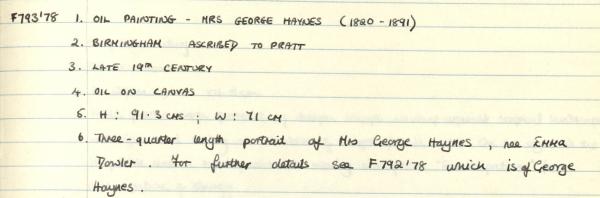 F793'78 1. OIL PAINTING - MRS GEORGE HAYNES (1820 - 1891)
2. BIRMINGHAM ASCRIBED TO PRATT
3. LATE 19TH CENTURY
4. OIL ON CANVAS
5. H : 91.3 CMS ; W : 71 CM
6. Three-quarter length portrait of Mrs George Haynes, nee EMMA
Dowler. For further details see F792'78 which is of George
Haynes.